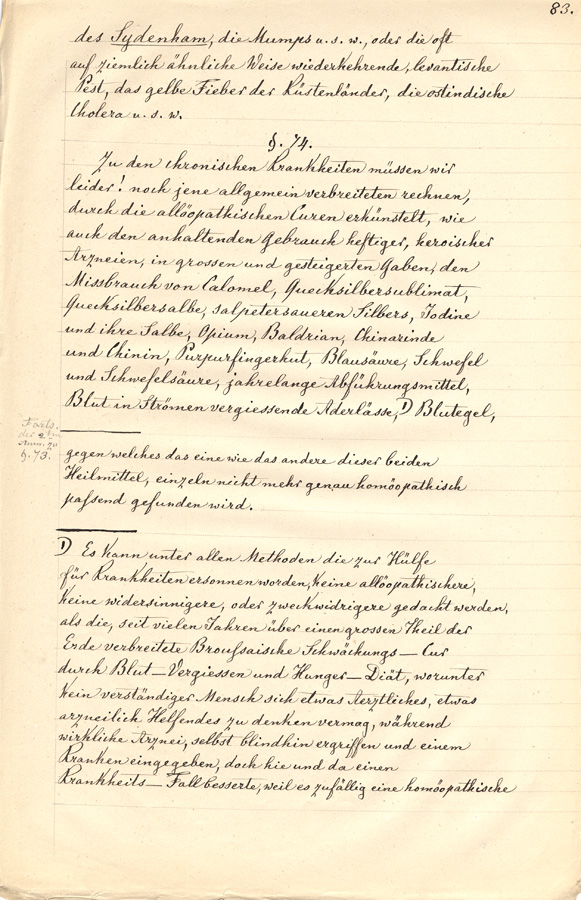 83.
des Sydenham, die Mumps u. s. w., oder die oft
auf ziemlich ähnliche Weise wiederkehrende, levantische
Pest, das gelbe Fieber der Küstenländer, die ostindische
Cholera u. s. w.
§. 74.
Zu den chronischen Krankheiten müssen wir
leider! noch jene allgemein verbreiteten rechnen,
durch die allöopathischen Curen erkünstelt, wie
auch den anhaltenden Gebrauch heftiger, heroischer
Arzneien, in grossen und gesteigerten Gaben, den
Missbrauch von Calomel, Quecksilbersublimat,
Quecksilbersalbe, salpetersaueren Silbers, Jodine
und ihre Salbe, Opium, Baldrian, Chinarinde
und Chinin, Purpurfingerhut, Blausäure, Schwefel
und Schwefelsäure, jahrelange Abführungsmittel,
Blut in Strömen vergiessende Aderlässe, 1) Blutegel,
Forts.
der 2ten
Anm. zu
§. 73.
gegen welches das eine wie das andere dieser beiden
Heilmittel, einzeln nicht mehr genau homöopathisch
passend gefunden wird.
1) Es kann unter allen Methoden die zur Hülfe
für Krankheiten ersonnen worden, keine allöopathischere,
keine widersinnigere, oder zweckwidrigere gedacht werden,
als die, seit vielen Jahren über einen grossen Theil der
Erde verbreitete Broussaische Schwächungs-Cur
durch Blut-Vergiessen und Hunger-Diät, worunter
kein verständiger Mensch sich etwas Aerztliches, etwas
arzneilich Helfendes zu denken vermag, während
wirkliche Arznei, selbst blindhin ergriffen und einem
Kranken eingegeben, doch hie und da einen
Krankheits-Fall besserte, weil es zufällig eine homöopathische